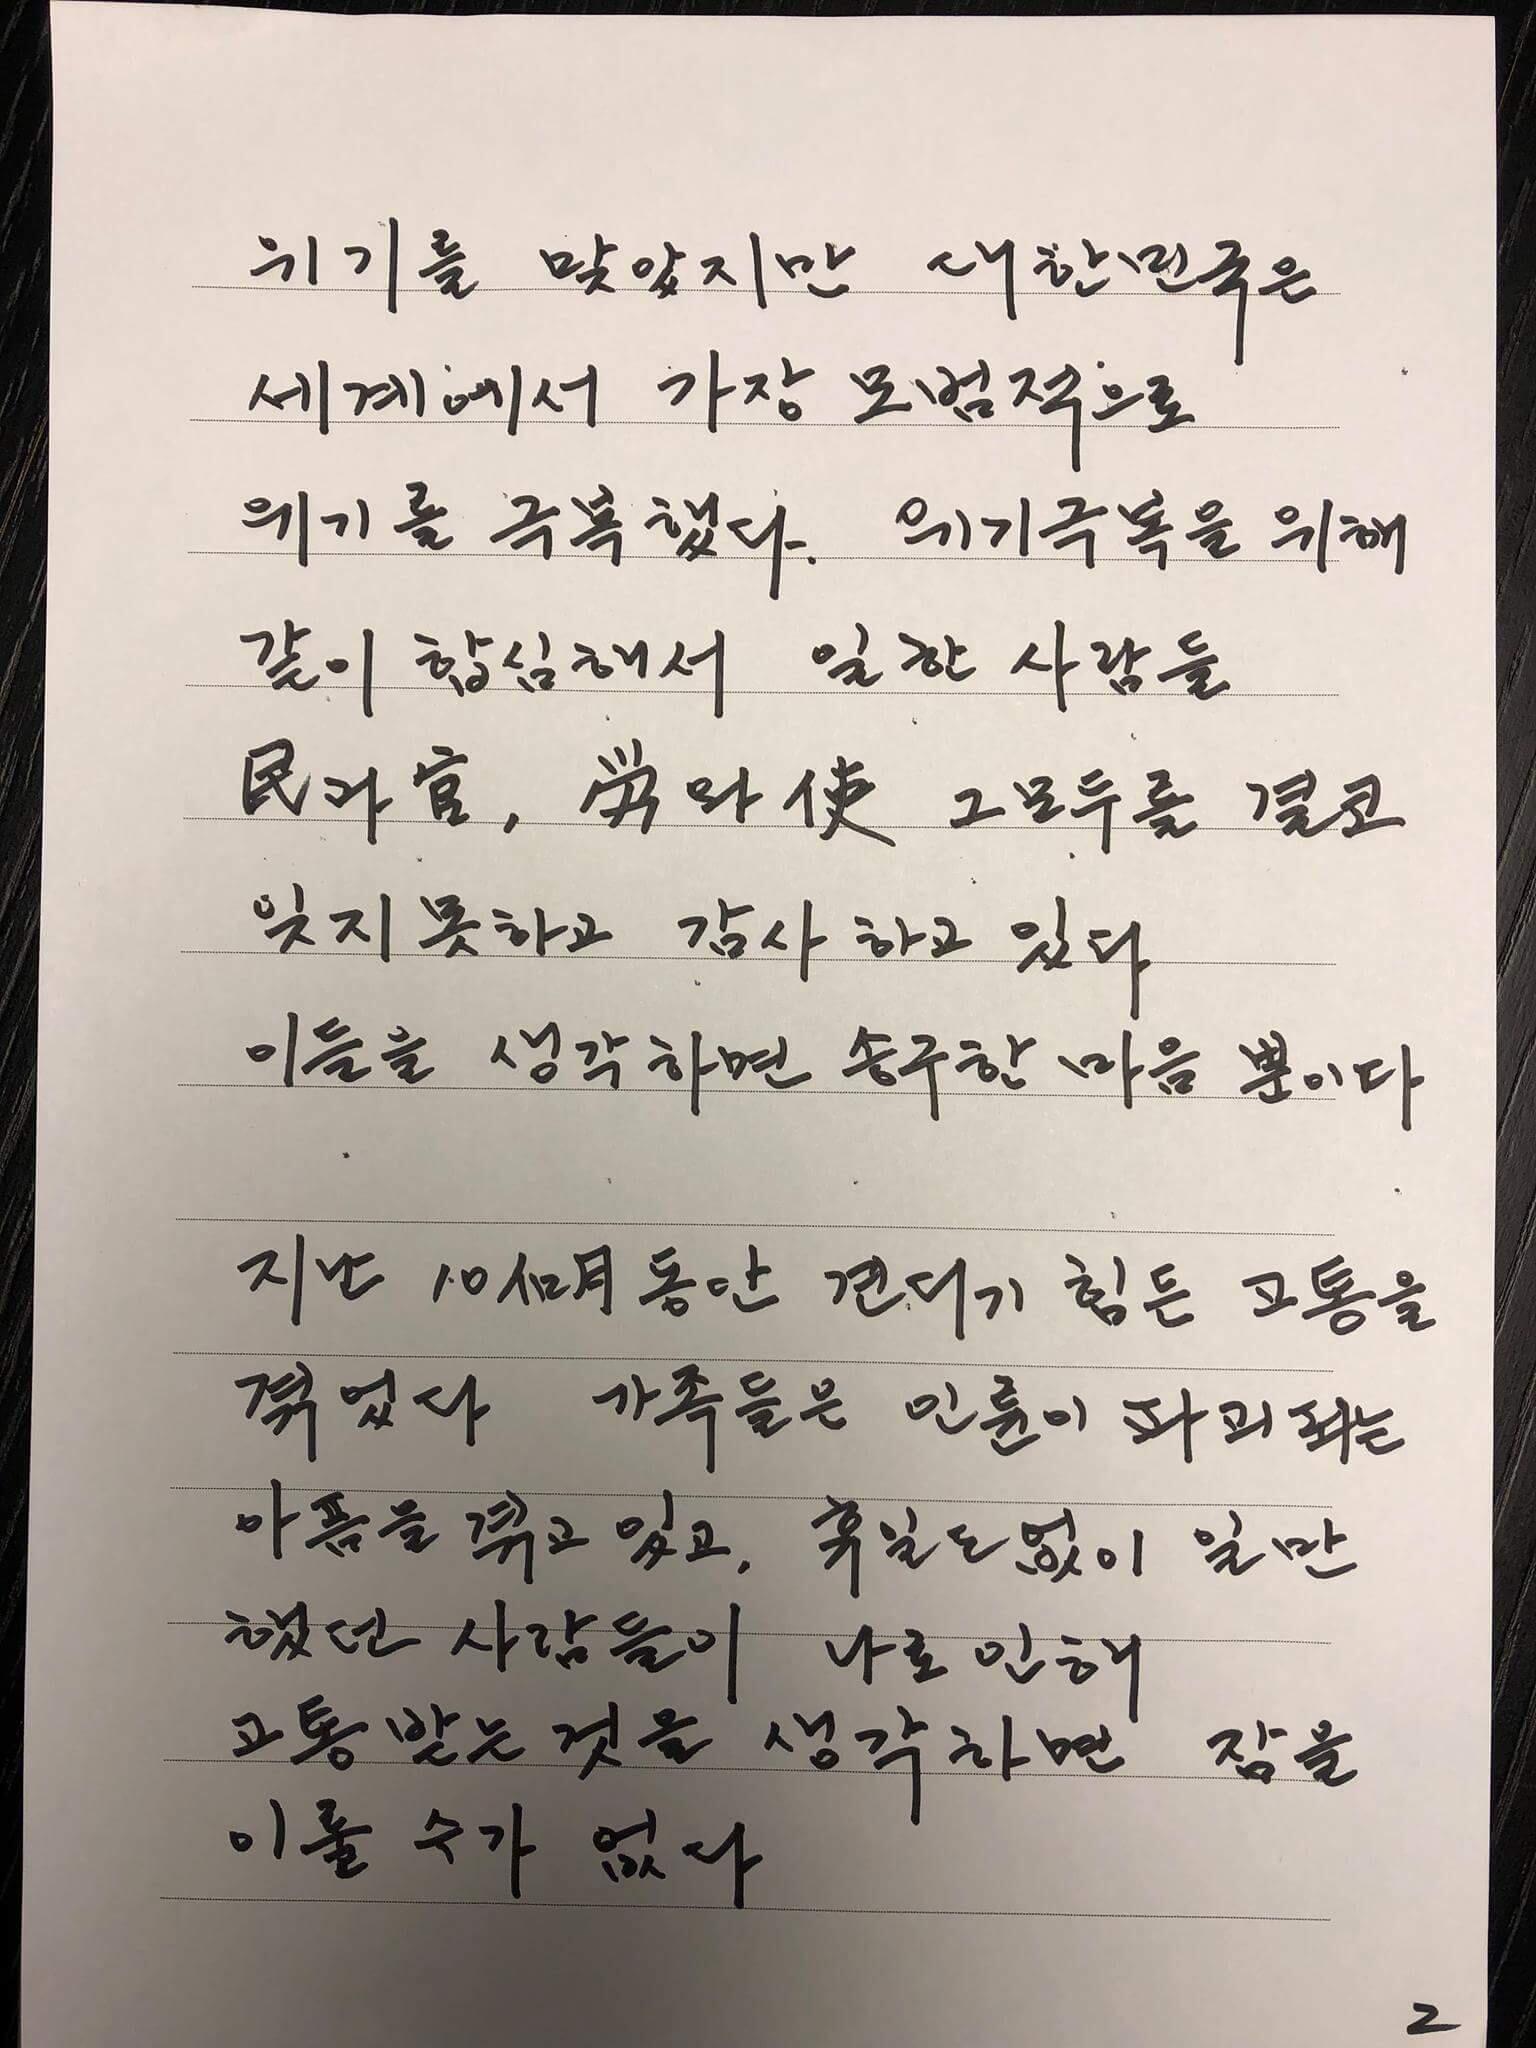 위기를 맞았지만 대한민국은
세계에서 가장 모범적으로
위기를 극복했다. 위기극복을 위해
같이 합심해서 일한 사람들
民과 官, 労와 使 그모두를 결코
잊지못하고 감사하고 있다
이들을 생각하면 송구한 마음 뿐이다
지난 10個月동안 견디기 힘든 고통을
겪었다 가족들은 인륜이 파괴되는
아픔을 겪고있고, 휴일도없이 일만
했던 사람들이 나로인해
고통받는것을 생각하면 잠을
이룰 수가 없다
2